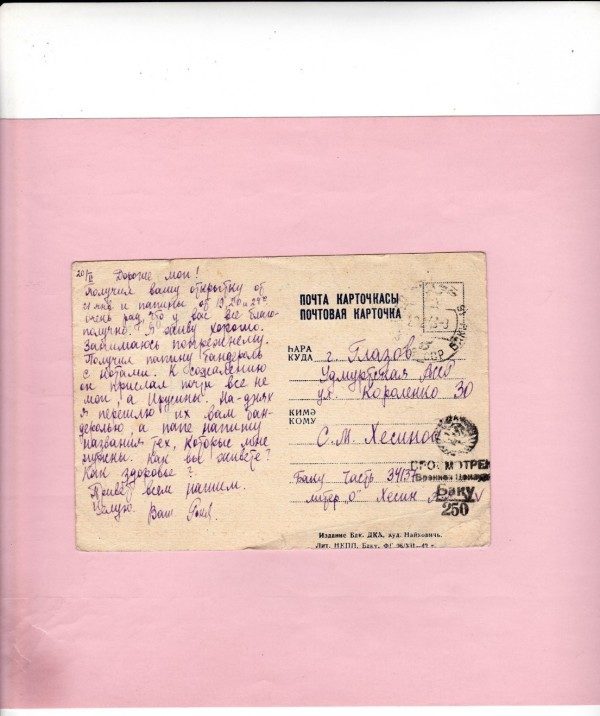 20/II Дорогие мои!
Получил вашу открытку от
21 янв и папины от 19, 20 и 24го
очень рад, что у вас все благо-
получно. Я живу хорошо.
Занимаюсь по прежнему.
Получил папину бандероль
с нотами. К сожалению
он прислал почти все не
мои а Ирусины. На-днях
я перешлю их вам бан-
деролью, а папе напишу
названия тех, которые мне
нужны. Как вы живете?
Как здоровье?
Привет всем нашим.
Целую Ваш
ПОЧТА КАРТОЧКАСЫ
ПОЧТОВАЯ КАРТОЧКА
ҺАРА
КУДА г. Глазов
Удмуртская АССР
ул. Короленко 30
КИМӘ
КОМУ
С. М. Хесиной
Баку часть
литер "О" Хесин
ПРОСМОТРЕНО
Военной Цензурой
Баку
250
Издание Бак. ДКА, худ. Найхович.
Лит. НКПП, Баку. ФГ